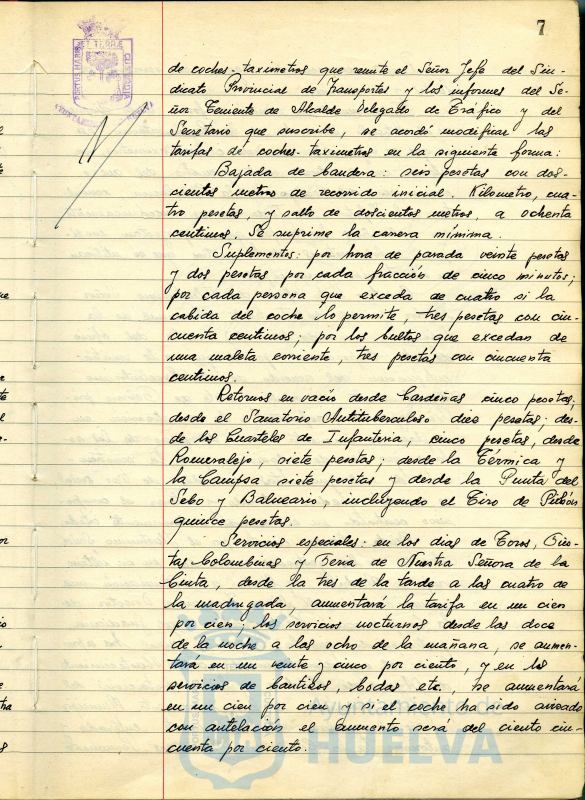 7
de coches-taximetros que remite el Señor Jefe del Sin-
dicato Provincial de Transportes y los informes del Se-
ñor Teniente de Alcalde Delegado de Tráfico y del
Secretario que suscribe, se acordó modificar las
tarifas de coches-taximetros en la siguiente forma:
Bajada de bandera: seis pesetas con dos-
cientos metros de recorrido inicial. Kilometro, cua-
tro pesetas, y salto de doscientos metros, a ochenta
centimos. Se suprime la carrera mínima.
Suplementos: por hora de parada veinte pesetas
y dos pesetas por cada fracción de cinco minutos;
por cada persona que exceda de cuatro si la
cabida del coche lo permite, tres pesetas con cin-
cuenta centimos; por los bultos que excedan de
una maleta corriente, tres pesetas con cincuenta
centimos.
Retornos en vacío desde Cardeñas cinco pesetas;
desde el Sanatorio Antituberculoso diez pesetas; des-
de los Cuarteles de Infanteria, cinco pesetas, desde
Romeralejo, siete pesetas; desde la Térmica y
la Campsa siete pesetas y desde la Punta del
Sebo y Balneario, incluyendo el Tiro de Pichón
quince pesetas.
Servicios especiales: en los dias de Toros, Fies-
tas Colombinas y Feria de Nuestra Señora de la
Cinta, desde la tres de la tarde a las cuatro de
la madrugada, aumentará la tarifa en un cien
por cien; los servicios nocturnos desde las doce
de la noche a las ocho de la mañana, se aumen-
tará en un veinte y cinco por ciento, y en los
servicios de bautizos, bodas etc., se aumentará
en un cien por cien y si el coche ha sido avisado
con antelación el aumento será del ciento cin-
cuenta por ciento.
Ayuntamiento de
HUELVA